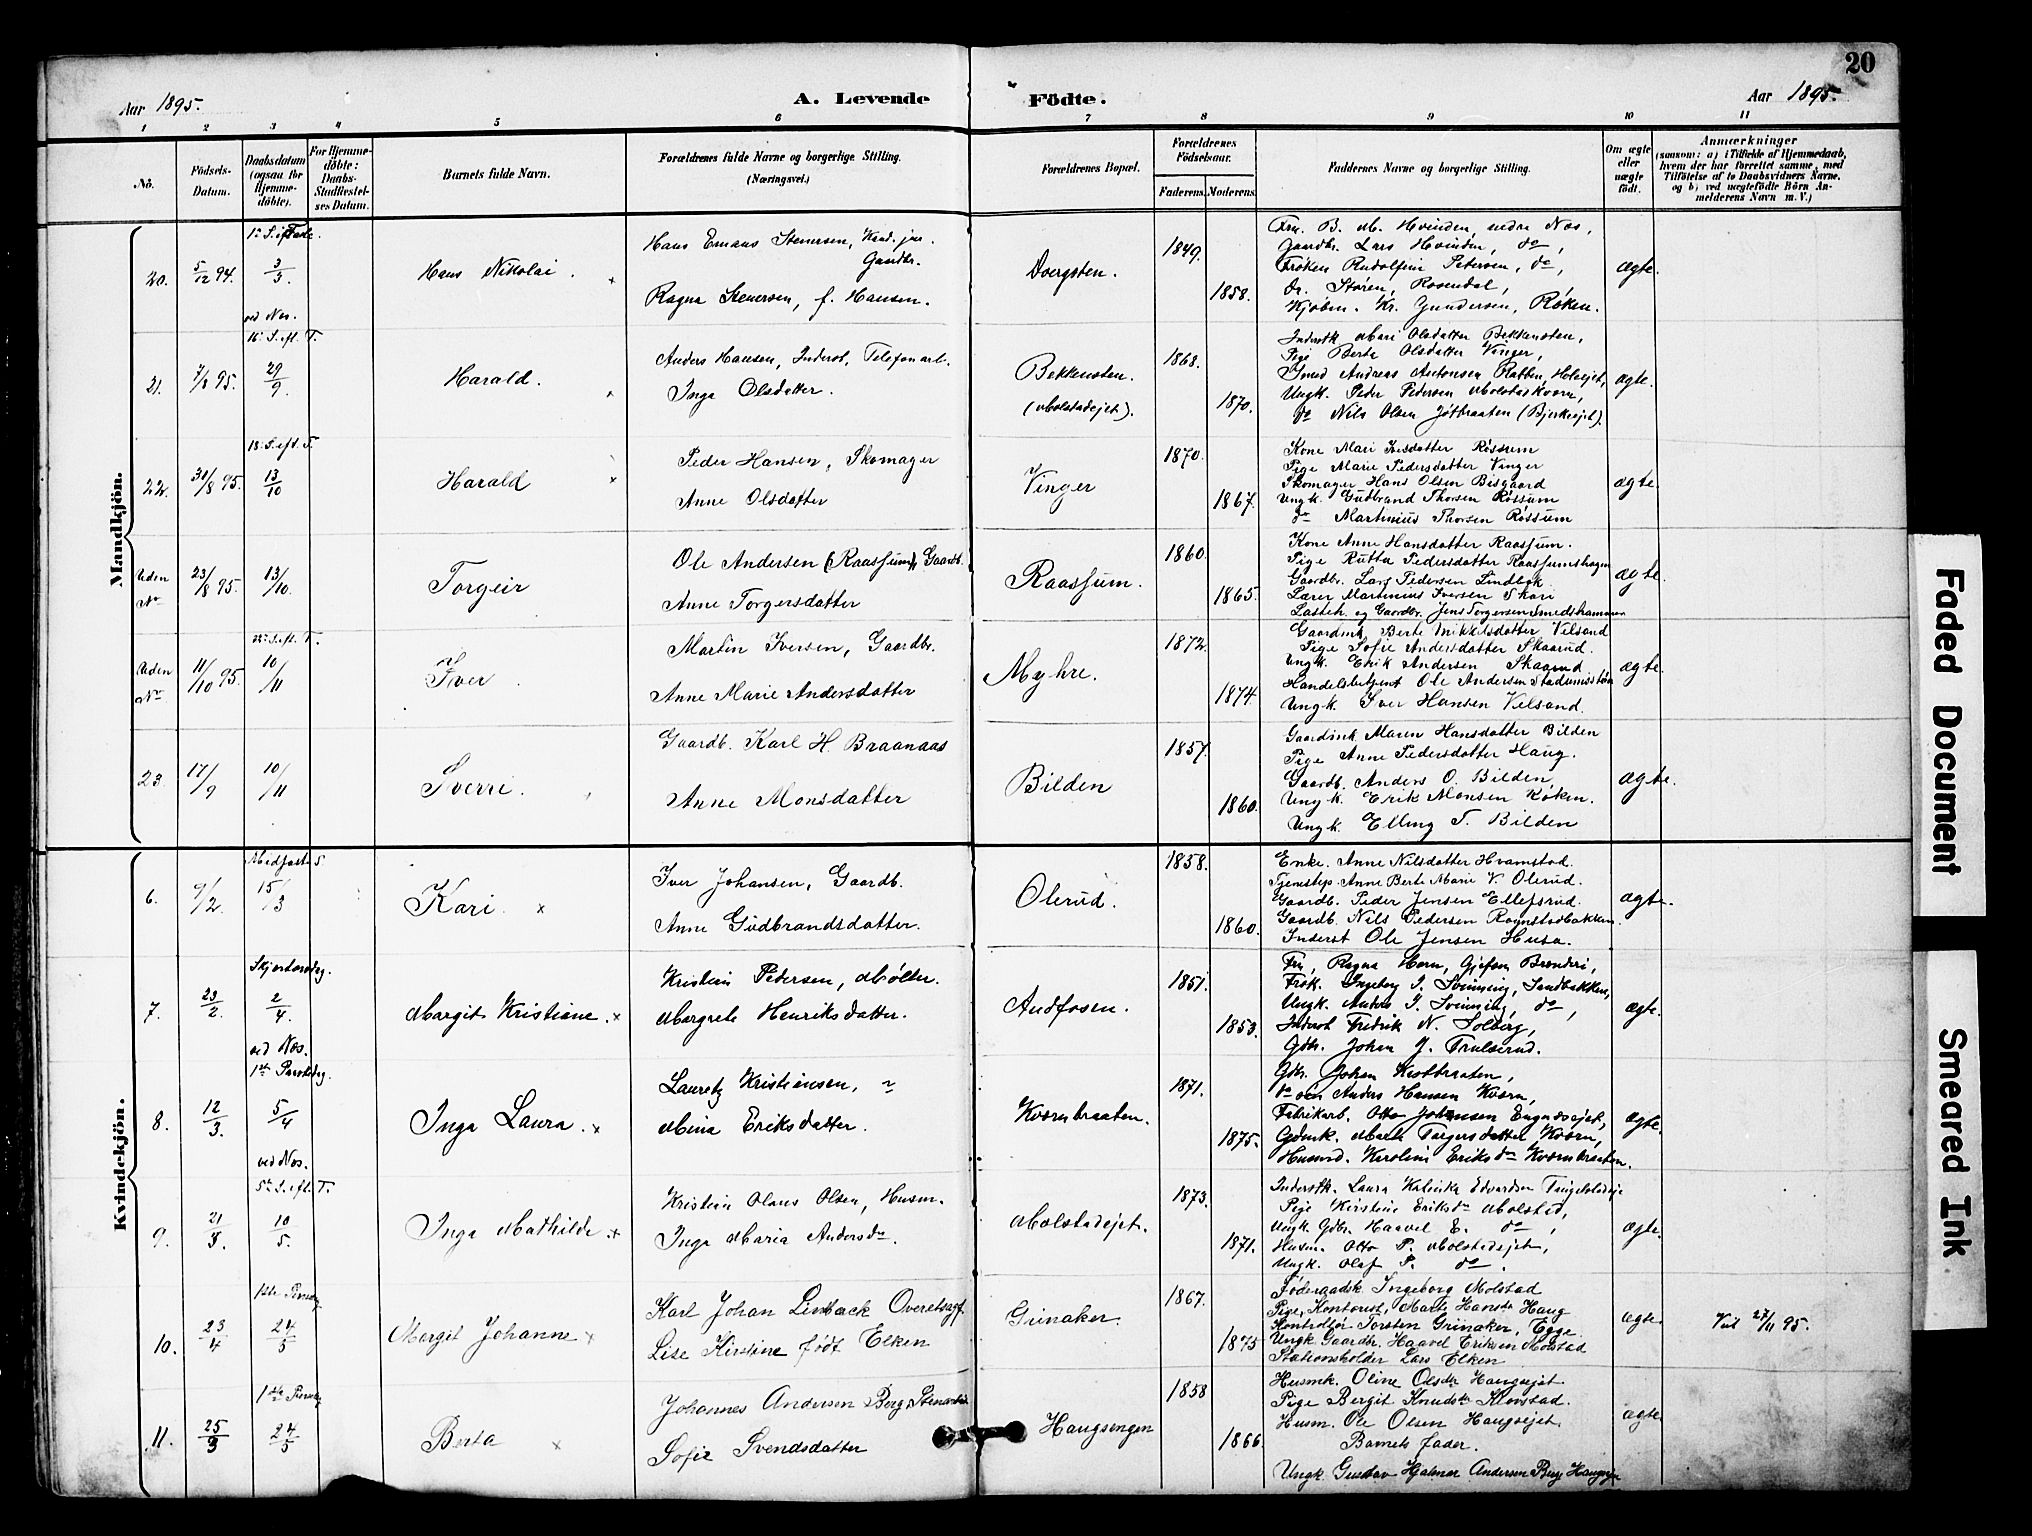 20
Aar 1895.
A. Levende Födte.
Aar 1895.
1 2 3 4 5 6 7 8 9 10 11
No.
Födsels-Datum.
Daabsdatum (ogsaa for Hjemme-döbte).
For Hjemme-döbte: Daabs-Stadfæstel-ses Datum.
Barnets fulde Navn.
Forældrenes fulde Navne og borgerlige Stilling.
(Næringsvei.)
Forældrenes Bopæl.
Forældrenes Födselsaar.
Faderens. Moderens.
Faddernes Navne og borgerlige Stilling.
Om ægte eller uægte født.
Anmærkninger
(saasom: a) i Tilfælde af Hjemmedaab, hvem der har forrettet samme, med Tilföielse af to Daabsvidners Navne, og b) ved uægtefödte Börn An-melderens Navn m. V.)
Mandkjön.
20. 5/12 94. 3/3. ved Nes.
Hans Nikolai
Hans Emaus Stenersen, Kand. jur. Gaardbr.
Ragna Stenersen, f. Hansen.
1849. 1858.
Fru B. M. Hvinden, nedre Næs,
Gaardbr. Lars Hvinden, do,
Frøken Rudolfine Petersen, do,
Dr. Støren, Rosendal,
Kjøbm. Kr. Gundersen, Røken.
ægte.
21. 7/8 95. 16. S. eft. T. 29/9.
Harald.
Anders Hansen, Inderst, Telefonarb.
Inga Olsdatter.
Bekkensten.
(Molstadejet).
1868. 1870.
Inderstk Mari Olsdatter Bekkensten,
Pige Berte Olsdatter Vinger,
Smed Andreas Antonsen Rabben, Holsejet,
Ungk. Peder Pedersen Molstadkvern,
do Nils Olsen Jøtbraaten (Bjerkeejet).
ægte.
22. 30/8 95. 18. S. eft. T. 13/10
Harald
Peder Hansen, Skomager
Anne Olsdatter
Vinger
1870. 1867.
Kone Mari Iversdatter Røssum
Pige Marie Pedersdatter Vinger
Skomager Hans Olsen Bisgaard
Ungk. Gudbrand Thorsen Røssum
do Martinius Thorsen Røssum
ægte.
Uden No 23/8 95. 13/10.
Torgeir
Ole Andersen (Raassum), Gaardb.
Anne Torgersdatter
Raassum.
1860. 1865.
Kone Anne Hansdatter Raassum.
Pige Rutta Pedersdatter Raassumshagen
Gaardbr. Lars Pedersen Lindbak.
Lærer Martinius Iversen Skari
Lasteh. og Gaardbr. Jens Torgersen Smedshammer
ægte.
Uden No 11/10 95. S. eft. T. 10/11
Iver
Martin Iversen, Gaardbr.
Anne Marie Andersdatter
Myhre.
1872. 1874.
Gaardmk. Berte Mikkelsdatter Velsand
Pige Sofie Andersdatter Skaarud.
Ungk. Erik Andersen Skaarud
Handelsbetjent Ole Andersen
Ungk. Iver Hansen Velsand.
ægte.
23 17/9 10/11
Sverre.
Gaardb. Karl H. Braanaas
Anne Monsdatter
Bilden
1857. 1860.
Gaardmk. Maren Hansdatter Bilden
Pige Anne Pedersdatter Haug.
Gaardb. Anders O. Bilden
Ungk. Erik Monsen Røken.
Ungk. Elling T. Bilden
ægte.
Kvindekjön.
6. 9/2. Midfaste S. 15/3
Kari. x
Iver Johansen, Gaardb.
Anne Gudbrandsdatter.
Olerud.
1858. 1860.
Enke. Anne Nilsdatter Hvamstad.
Tjenestep. Anne Berte Marie V. Olerud.
Gaardb. Peder Jensen Ellefsrud.
Gaardb. Nils Pedersen Ramstadbakken.
Inderst Ole Jensen Husa.
ægte.
7. 23/2. Skjærtorsdag. 2/4. ved Næs.
Margit Kristiane. x
Kristian Pedersen, Møller.
Margrete Henriksdatter.
Andfosen.
1851. 1853.
Fru, Ragna Horn, Gjefsen Brænderi,
Frøk. Ingeborg I. Svinning, Sandbakken,
Ungk. I. Svinning, do,
Inderst Fredrik N. Solberg,
Gdbr. Johan J. Trulserud.
ægte.
8. 12/3. 1ste Paaskedag. 5/4 ved Næs.
Inga Laura. x
Lauretz Kristiansen,
Mina Eriksdatter.
Kværnbraaten.
1871. 1875.
Gdbr. Johan Kvætbraaten,
Anders Hansen Kværn,
Fabrikarb. Otto Johansen
Gdmk. Marte Torgersdatter Kværn,
Husmd. Karoline Eriksda Kværnbraaten.
ægte.
9. 21/3. 5te S. eft. T. 10/5.
Inga Mathilde. x
Kristian Olaus Olsen, Husm.
Inga Maria Andersda.
Molstadejet.
1873. 1871.
Inderstk. Laura Edvardsen
Pige Kirstine Eriksda Molstad,
Ungk. Gdbr. Haavel E. do,
Husm. Otto P. Molstadejet,
Ungk. Olaf P. do.
ægte.
10. 23/4 1ste Pinsedag 24/5
Margit Johanne x
Karl Johan Limback Overretssagf.
Lise Kirstine født Elken
Grinaker.
1867. 1875
Føderaadsk. Ingeborg Molstad
Pige, Kontorist, Marte Hansda Haug
Kontrollør Torsten Grinaker, Egge
Ungk. Gaardbr. Haavel Eriksen Molstad
Stationsholder Lars Elken
ægte.
27/11 95.
11. 25/3 1ste Pinsedag 24/5
Berta x
Johannes Andersen Berg,
Sofie Svendsdatter
Haugsengen
1858 1866.
Husmk. Oline Olsdr Haugsejet.
Pige Bergit Knudsdr Klovstad.
Husm. Ole Olsen Haugsejet.
Barnets fader.
Ungk. Gustav Hjalmar Andersen Berg
ægte
Faded Document
Smeared Ink